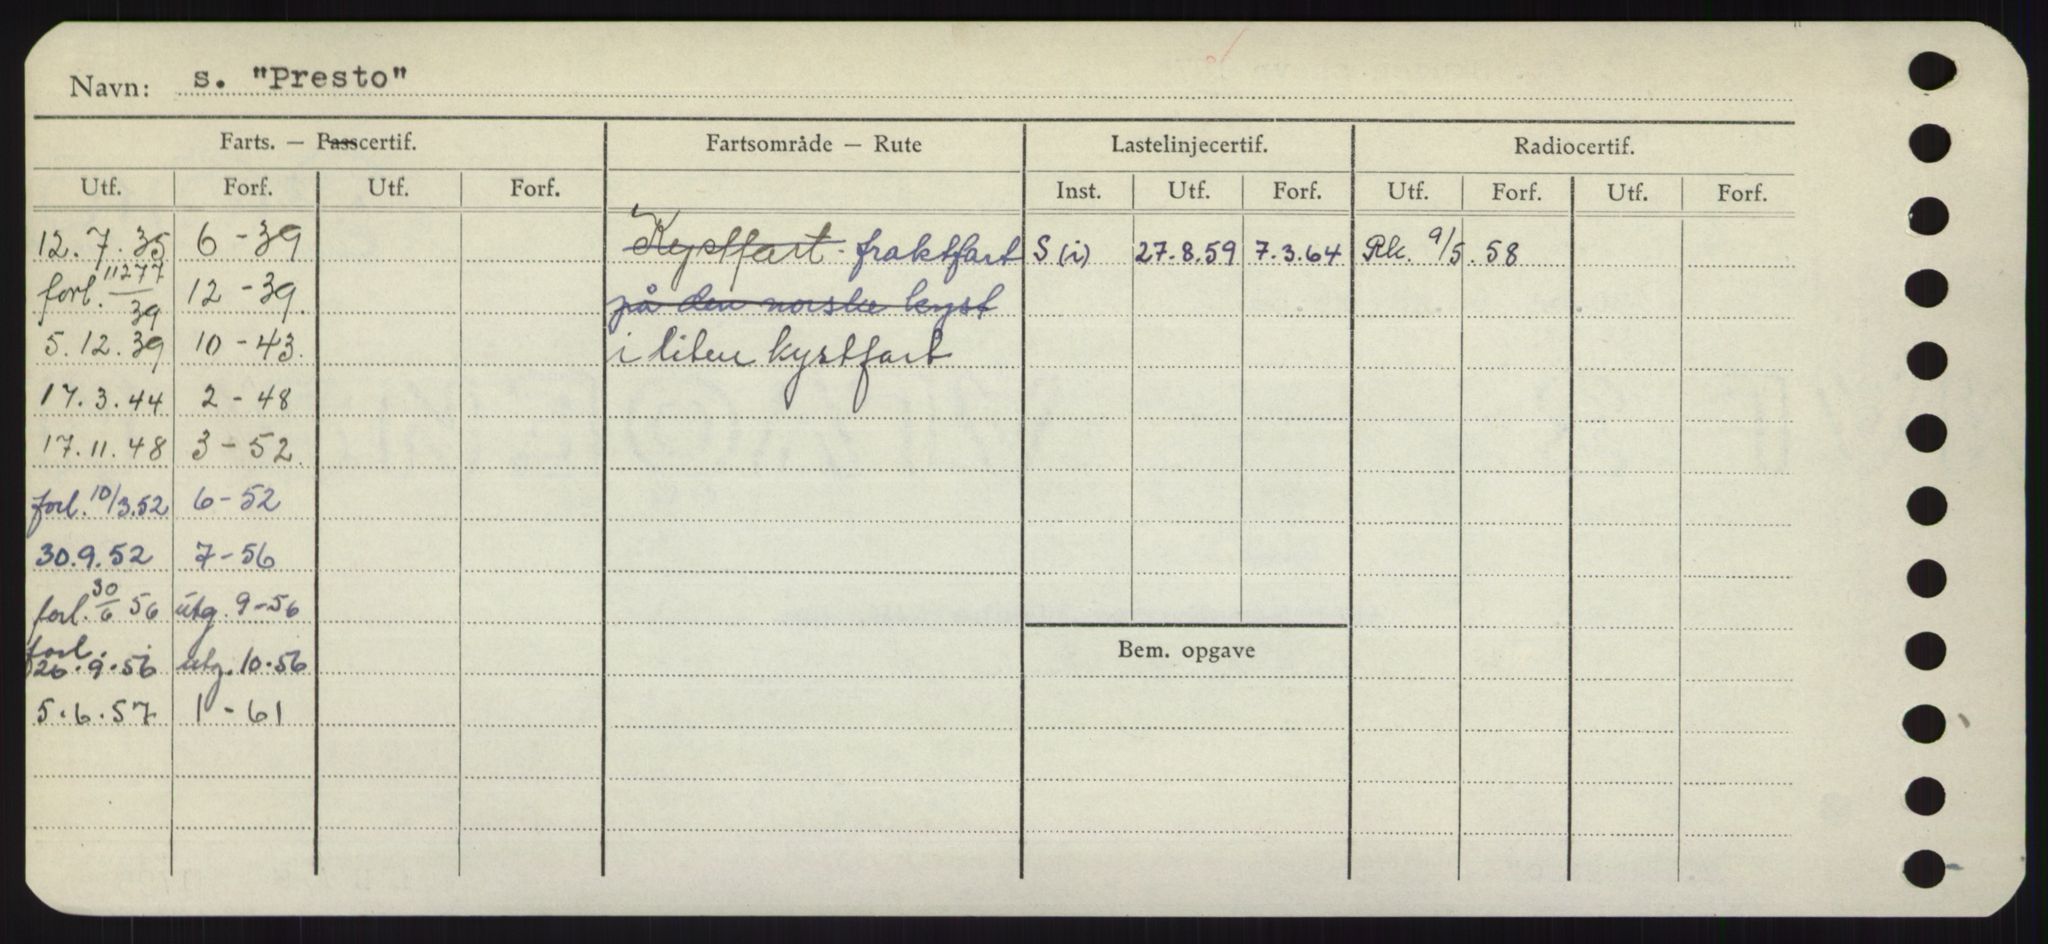 Navn: s. "Presto"
Farts. — Passcertif. Fartsområde — Rute Lastelinjecertif. Radiocertif.
Utf. Forf. Utf. Forf. Inst. Utf. Forf. Utf. Forf. Utf. Forf.
12.7.35 6-39 Kystfart. fraktfart S (i) 27.8.59 7.3.64 Rk. 9/5.58
forl. 11277/39 12-39. på den norske kyst
5.12.39 10-43. i liten kystfart
17.3.44 2-48
17.11.48 3-52.
forl. 10/3.52 6-52
30.9.52 7-56
forl. 30/6 56 utg. 9-56
forl.
26.9.56 utg. 10.56
Bem. opgave
5.6.57 1-61